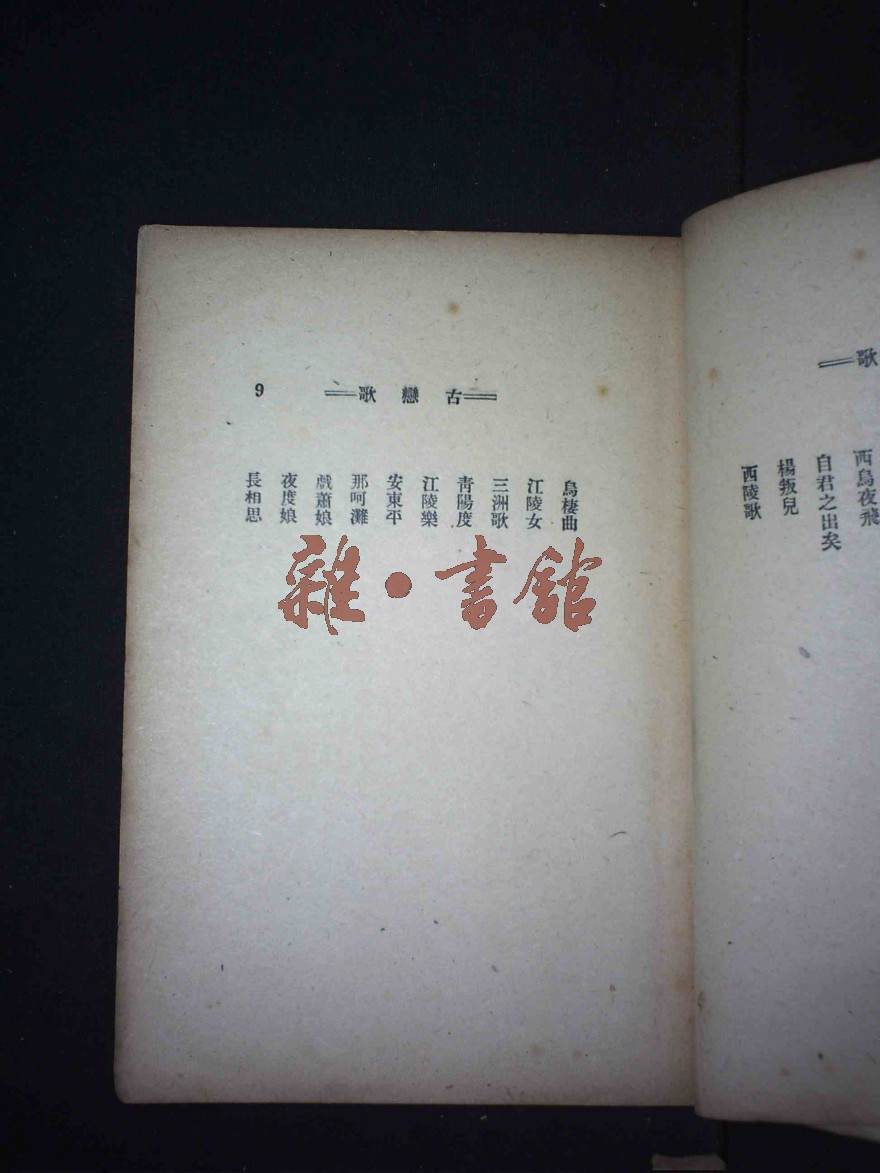 9
古戀歌
烏棲曲
江陵女
三洲歌
青陽度
江陵樂
安東平
那呵灘
戲蕭娘
夜度娘
長相思
雜·書舘
歌
西烏夜飛
自君之出矣
楊叛兒
西陵歌